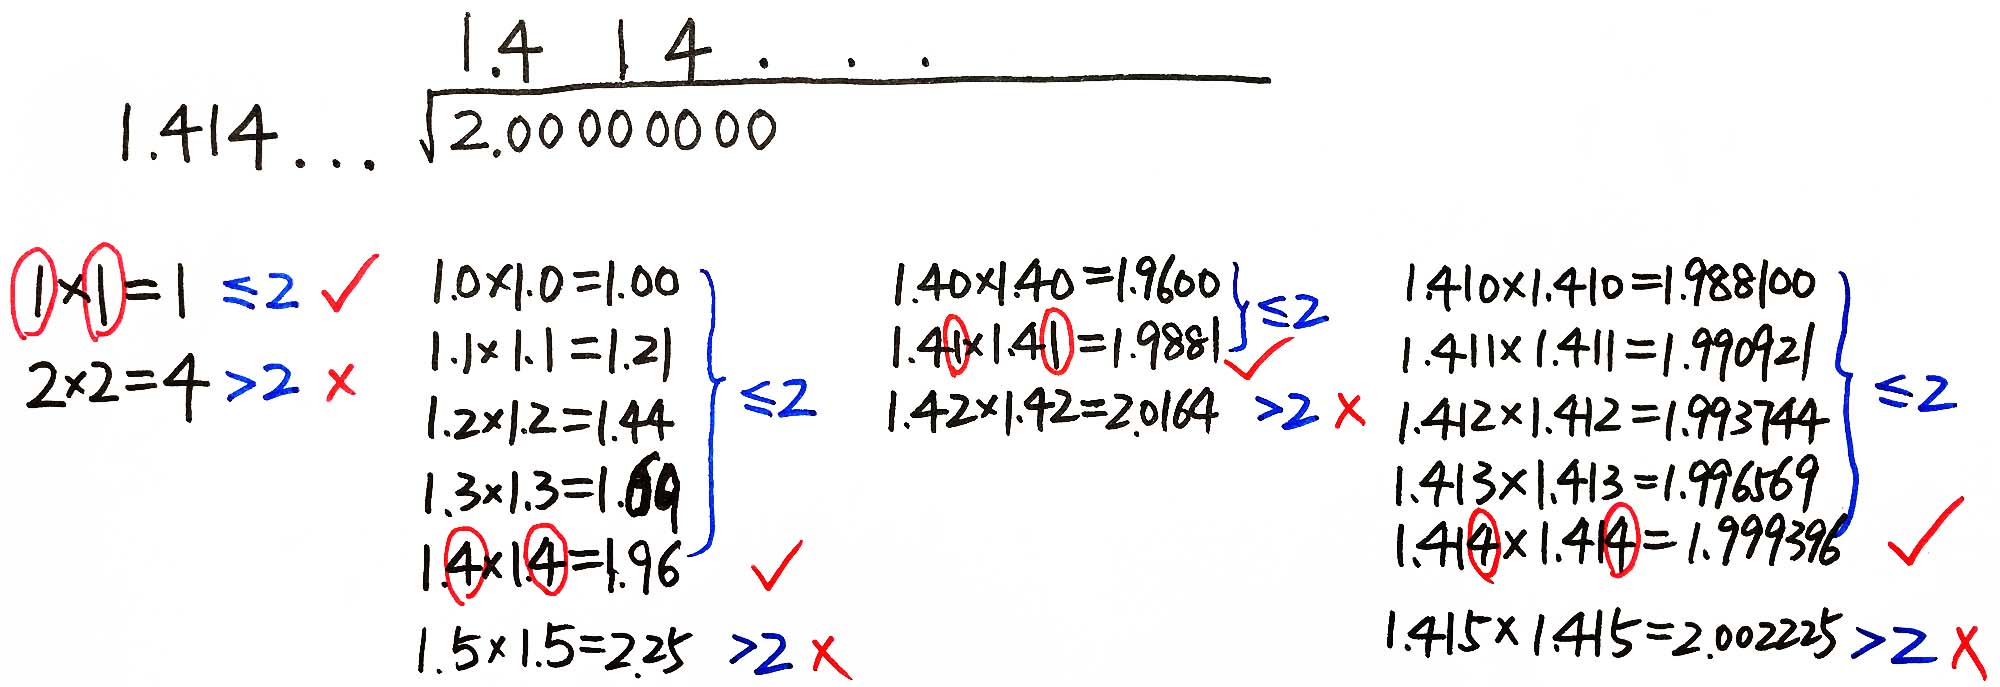 1.4 1 4 . . .
1.414... √2.00 00 00 00
1×1=1 ≤2 ✓
2×2=4 >2 ×
1.0×1.0=1.00
1.1×1.1=1.21
1.2×1.2=1.44
1.3×1.3=1.69
1.4×1.4=1.96
≤2 ✓
1.5×1.5=2.25 >2 ×
1.40×1.40=1.9600
1.41×1.41=1.9881
≤2 ✓
1.42×1.42=2.0164 >2 ×
1.410×1.410=1.988100
1.411×1.411=1.990921
1.412×1.412=1.993744
1.413×1.413=1.996569
1.414×1.414=1.999396
≤2 ✓
1.415×1.415=2.002225 >2 ×